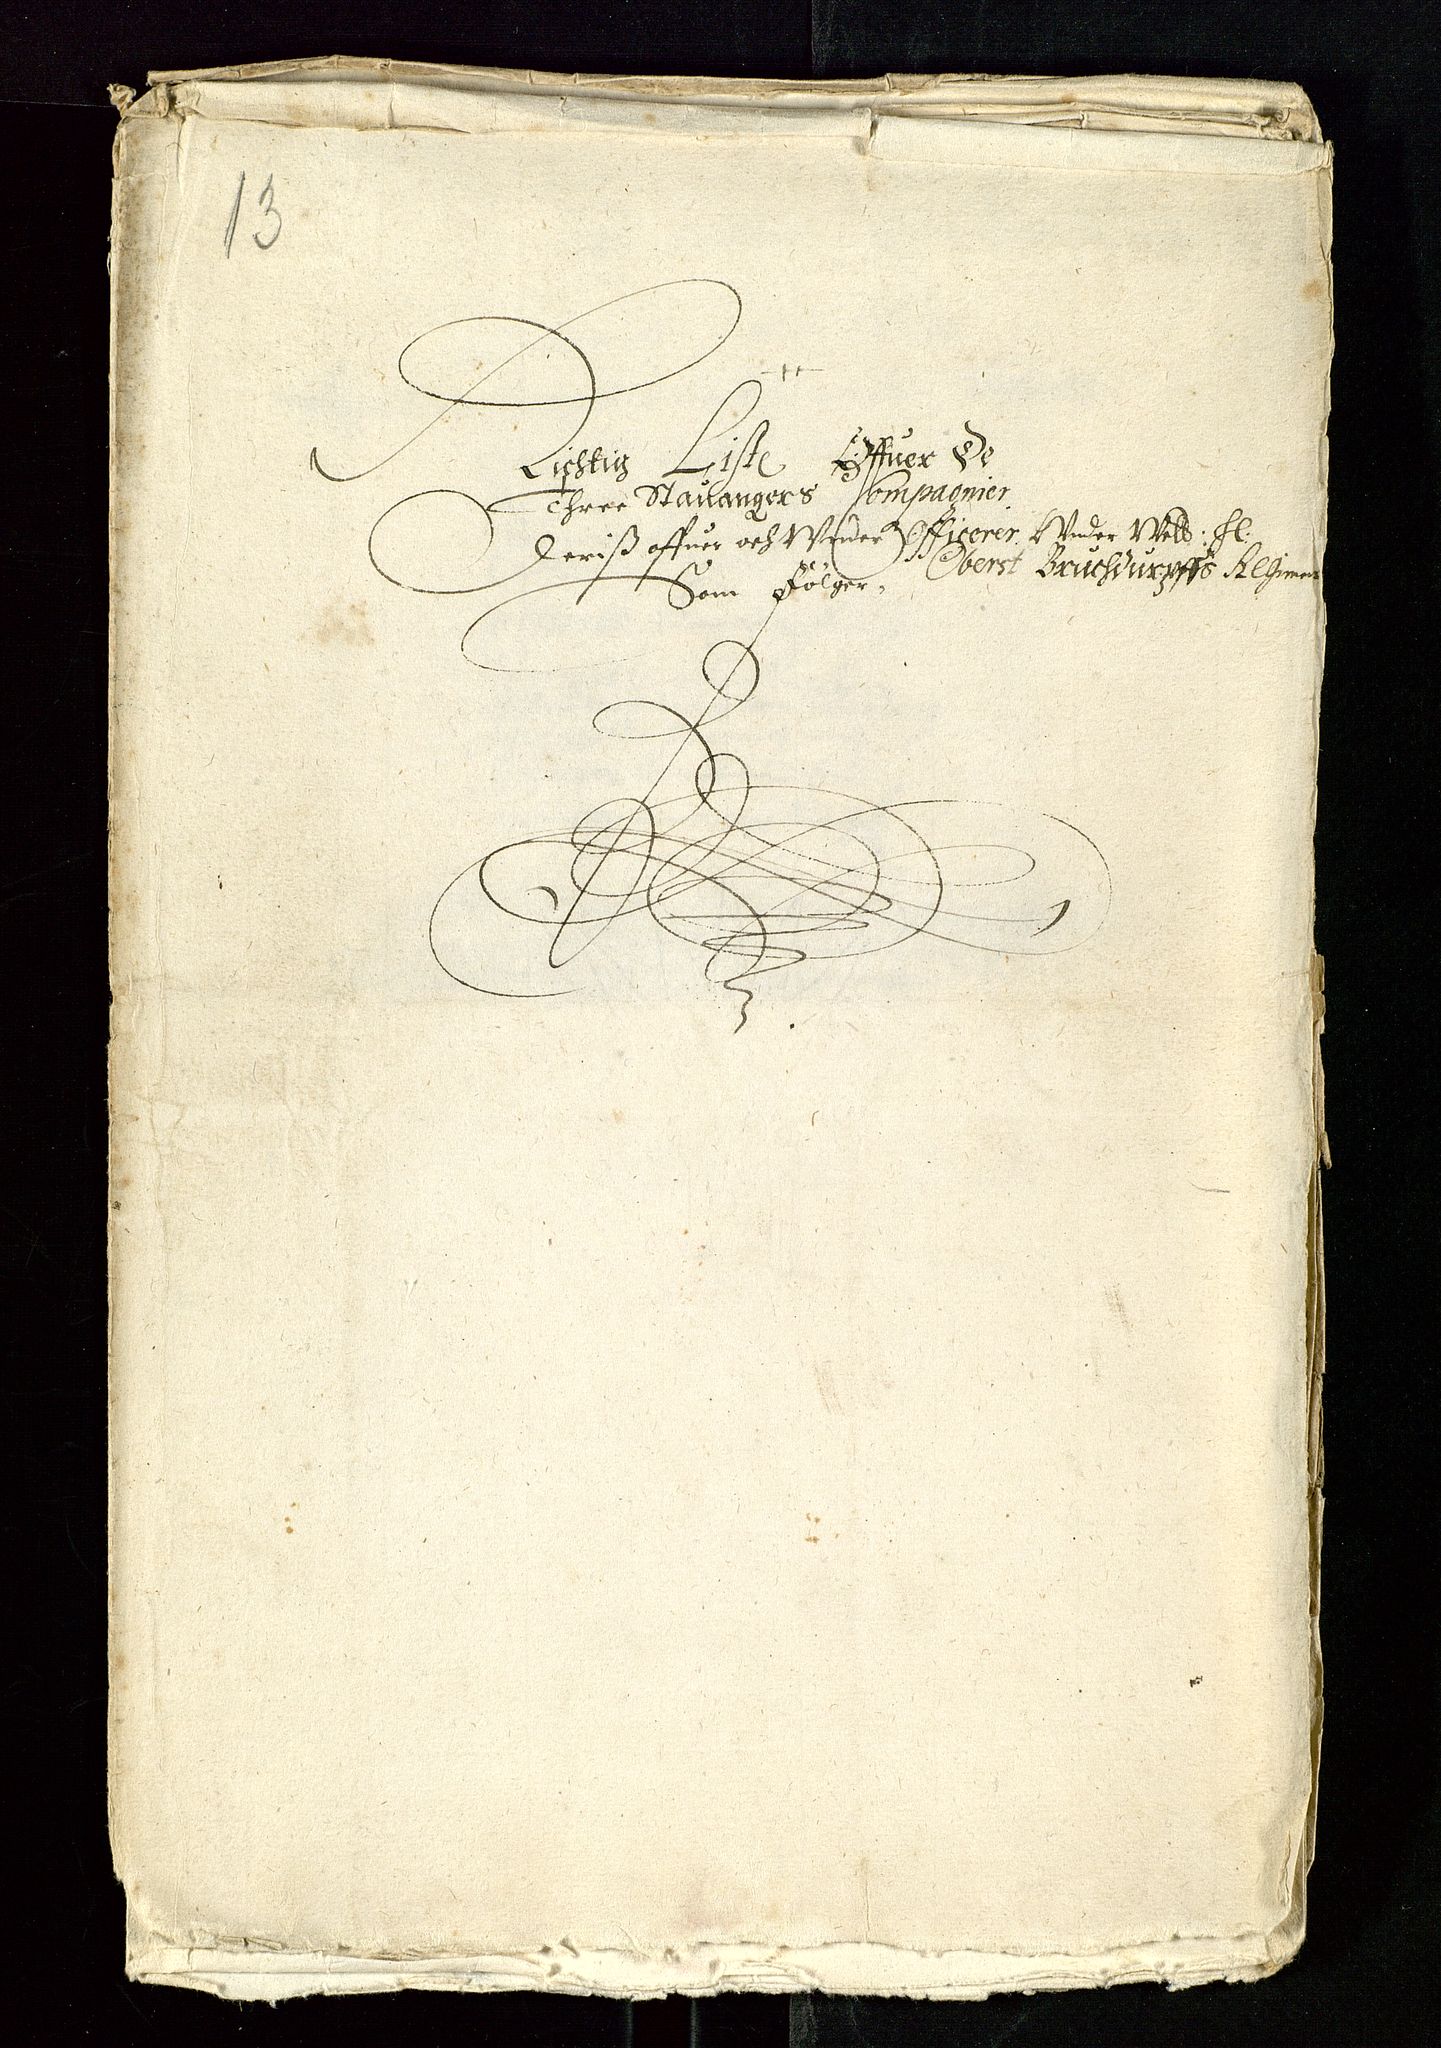 13
Richtig Liste Offuer De
Three Stauangers Compagnier
Deriß offuer och Wnder Officerer, Wnder Welb: Hl:
Oberst Bruchdurpffs Regiment
Som Fölger.